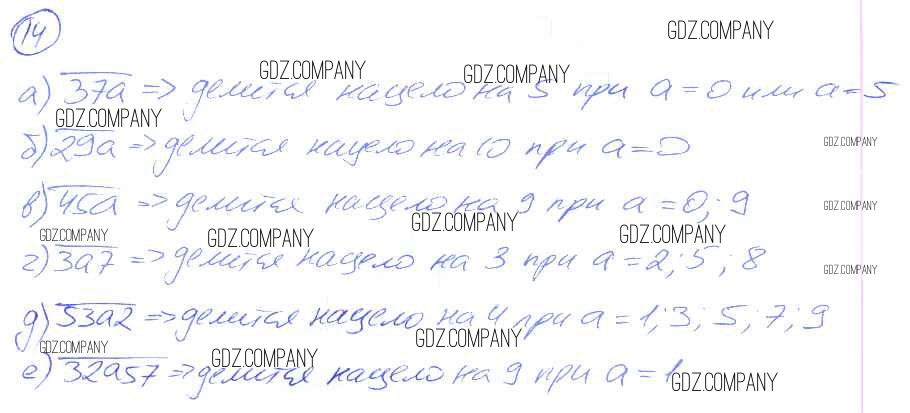 14
GDZ.COMPANY
GDZ.COMPANY GDZ.COMPANY
а) 37а => делится нацело на 5 при а = 0 или а = 5
GDZ.COMPANY
б) 29а => делится нацело на 10 при а = 0 GDZ.COMPANY
в) 45а => делится нацело на 9 при а = 0; 9 GDZ.COMPANY
GDZ.COMPANY GDZ.COMPANY GDZ.COMPANY GDZ.COMPANY
г) 3а7 => делится нацело на 3 при а = 2; 5; 8 GDZ.COMPANY
д) 53а2 => делится нацело на 4 при а = 1; 3; 5; 7; 9
GDZ.COMPANY GDZ.COMPANY GDZ.COMPANY
е) 32а57 => делится нацело на 9 при а = 1 GDZ.COMPANY